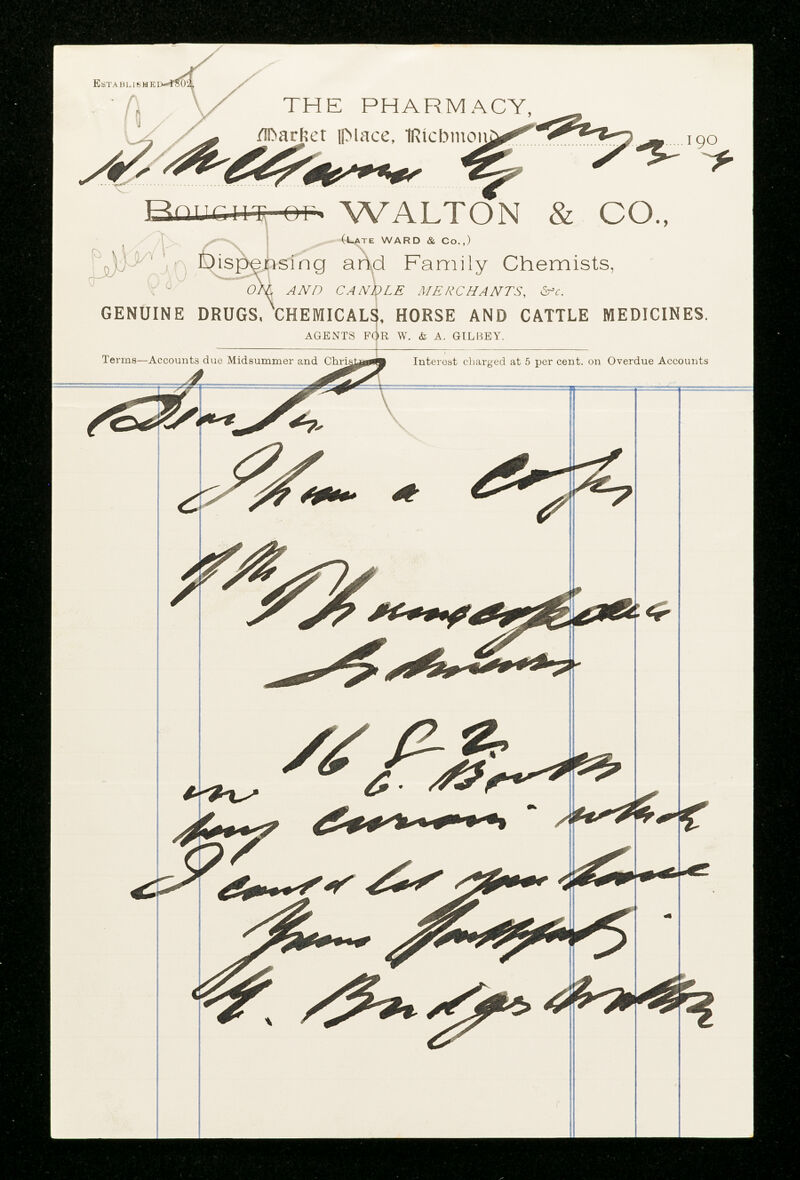 ESTABLISHED 1802.
THE PHARMACY,
Market Place, Richmond 190
S. Wellcome
BOUGHT OF WALTON & CO.,
(LATE WARD & Co.,)
Letters
Dispensing and Family Chemists,
OIL AND CANDLE MERCHANTS, &c.
GENUINE DRUGS, CHEMICALS, HORSE AND CATTLE MEDICINES.
AGENTS FOR W. & A. GILBEY.
Terms—Accounts due Midsummer and Christmas Interest charged at 5 per cent. on Overdue Accounts
Dear Sir
I have a copy
of the
Pharmacopoeia
1682
very curious which
I could let you have
Yours faithfully
H. Bridges Walton